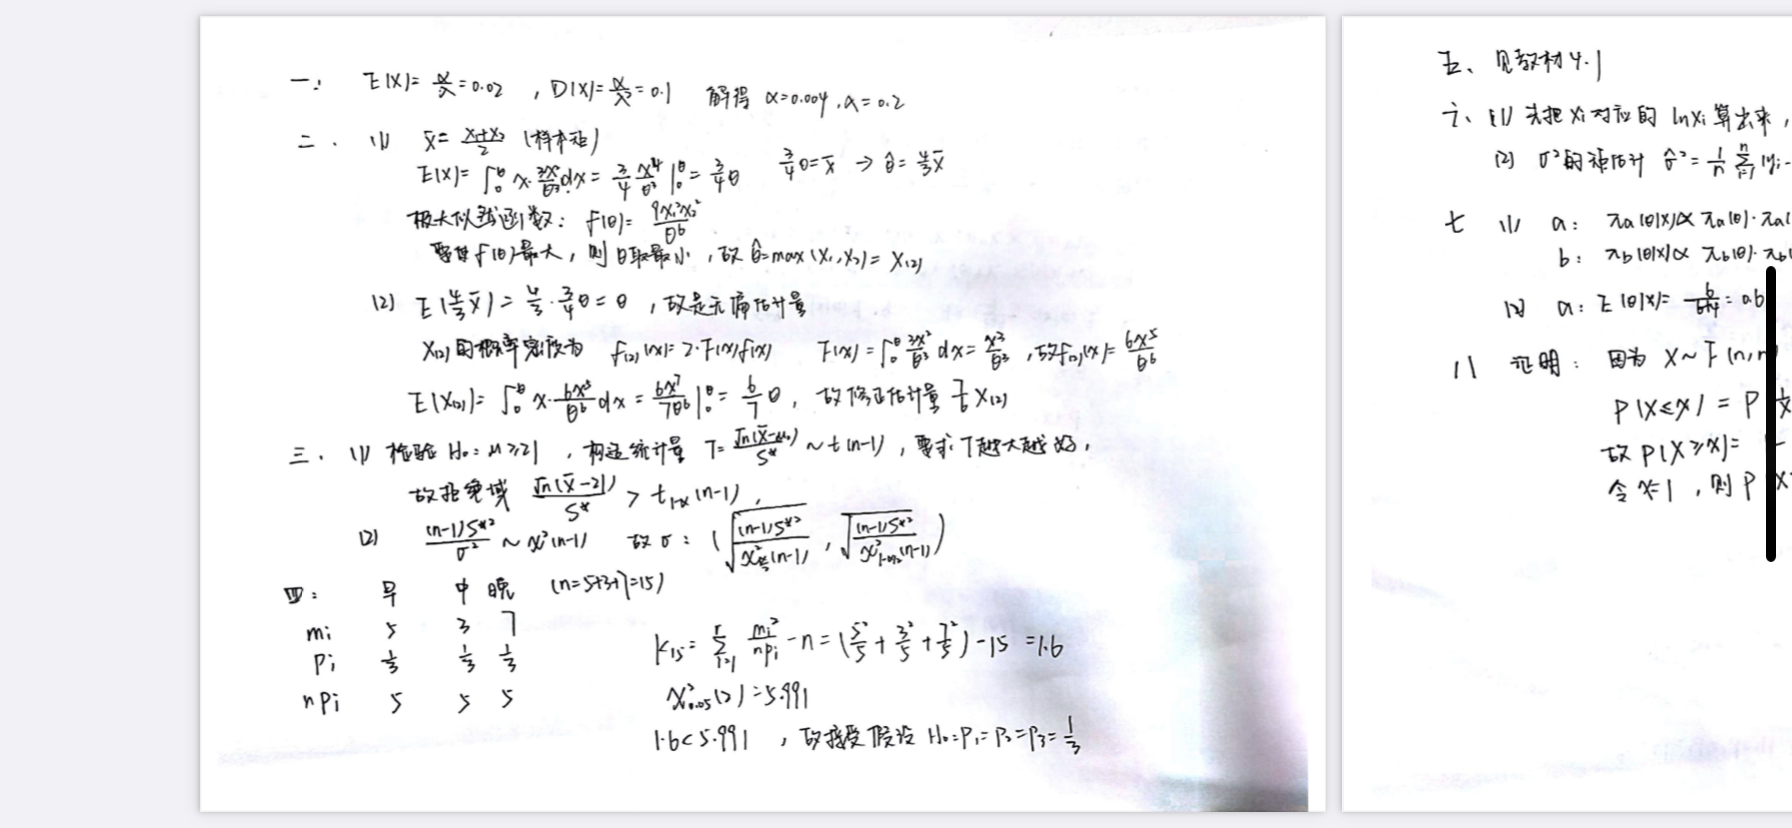 一、 E(X)=α/λ=0.02 , D(X)=α/λ²=0.1 解得 α=0.004, λ=0.2
二、 (1) x̄=(x₁+x₂)/2 (样本矩)
E(X)=∫₀^θ x·3x²/θ³ dx=3/4 x⁴/θ³|₀^θ=3/4θ 3/4θ=x̄ → θ̂=4/3x̄
极大似然函数: f(θ)=9x₁²x₂²/θ⁶
要使f(θ)最大, 则θ取最小, 故θ̂=max(X₁,X₂)=X₍₂₎
(2) E(4/3x̄)=4/3·3/4θ=θ , 故是无偏估计量
X₍₂₎的概率密度为 f₍₂₎(x)=2·F(x)f(x) F(x)=∫₀^θ 3x²/θ³ dx=x³/θ³ , 故f₍₂₎(x)=6x⁵/θ⁶
E(X₍₂₎)=∫₀^θ x·6x⁵/θ⁶ dx=6x⁷/7θ⁶|₀^θ=6/7θ, 故修正估计量 7/6X₍₂₎
三、 (1) 检验 H₀: μ≥21 , 构造统计量 T=√n(x̄-μ₀)/S* ~ t(n-1) , 要求T越大越好,
故拒绝域 √n(x̄-21)/S* > t₁₋α(n-1).
(2) (n-1)S*²/σ² ~ χ²(n-1) 故σ: (√((n-1)S*²/χ²α/₂(n-1)) , √((n-1)S*²/χ²₁₋α/₂(n-1)))
四: 早 中 晚 (n=5+3+7=15)
mi 5 3 7
Pi 1/3 1/3 1/3
nPi 5 5 5
K₁₅=Σ mi²/npi - n=(5²/5+3²/5+7²/5)-15=1.6
χ²₀.₀₅(2)=5.991
1.6<5.991 , 故接受假设 H₀:P₁=P₂=P₃=1/3
五、 见教材4.1
六、 (1) 先把xi对应的 lnxi 算出来,
(2) σ²的 估计 σ̂²=1/n Σ(yi-
七 (1) a: πa(θ|x)∝πa(θ)·πa(
b: πb(θ|x)∝ πb(θ)·πb(
(2) a: E(θ|x)=6/(6+4)=0.6
八 证明: 因为 X~F(n,n
P(X≤x)=P
故P(X≥x)=
令x=1 , 则P X